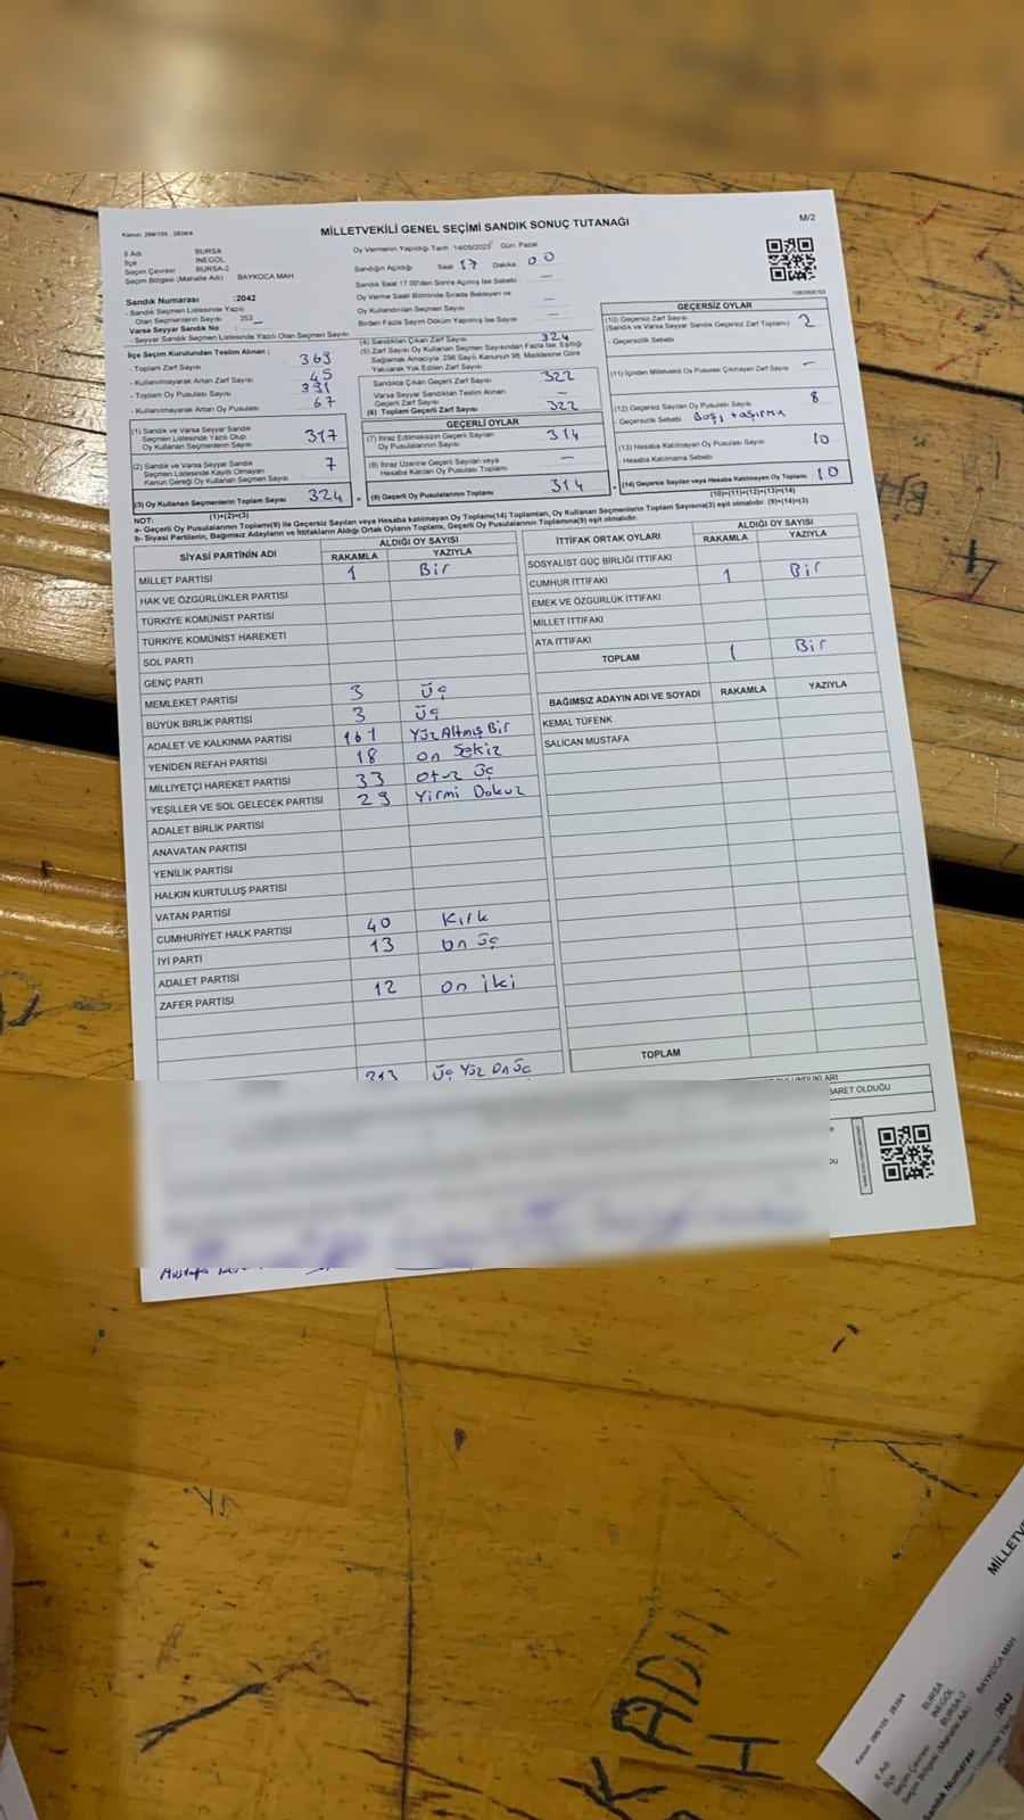 Kanun: 298/105 , 2839/4
MİLLETVEKİLİ GENEL SEÇİMİ SANDIK SONUÇ TUTANAĞI
M/2
İl Adı BURSA
İlçe İNEGÖL
Seçim Çevresi BURSA-2
Seçim Bölgesi (Mahalle Adı) : BAYKOCA MAH
Sandık Numarası :2042
- Sandık Seçmen Listesinde Yazılı
Olan Seçmenlerin Sayısı 353
Varsa Seyyar Sandık No
- Seyyar Sandık Seçmen Listesinde Yazılı Olan Seçmen Sayısı
Oy Vermenin Yapıldığı Tarih 14/05/2023 Gün Pazar
Sandığın Açıldığı Saat 17 Dakika 00
Sandık Saat 17.00'den Sonra Açılmış İse Sebebi —
Oy Verme Saati Bitiminde Sırada Bekleyen ve
Oy Kullandırılan Seçmen Sayısı —
Birden Fazla Sayım Döküm Yapılmış İse Sayısı —
İlçe Seçim Kurulundan Teslim Alınan :
- Toplam Zarf Sayısı 363
- Kullanılmayarak Artan Zarf Sayısı 45
- Toplam Oy Pusulası Sayısı 391
- Kullanılmayarak Artan Oy Pusulası 67
(1) Sandık ve Varsa Seyyar Sandık
Seçmen Listesinde Yazılı Olup
Oy Kullanan Seçmenlerin Sayısı 317
(2) Sandık ve Varsa Seyyar Sandık
Seçmen Listesinde Kaydı Olmayan
Kanun Gereği Oy Kullanan Seçmen Sayısı 7
(3) Oy Kullanan Seçmenlerin Toplam Sayısı 324
(1)+(2)=(3)
(4) Sandıktan Çıkan Zarf Sayısı 324
(5) Zarf Sayısı Oy Kullanan Seçmen Sayısından Fazla İse, Eşitliği
Sağlamak Amacıyla, 298 Sayılı Kanunun 98. Maddesine Göre
Yakılarak Yok Edilen Zarf Sayısı
Sandıkta Çıkan Geçerli Zarf Sayısı 322
Varsa Seyyar Sandıktan Teslim Alınan
Geçerli Zarf Sayısı —
(6) Toplam Geçerli Zarf Sayısı 322
GEÇERLİ OYLAR
(7) İtiraz Edilmeksizin Geçerli Sayılan
Oy Pusulalarının Sayısı 314
(8) İtiraz Üzerine Geçerli Sayılan veya
Hesaba Katılan Oy Pusulası Toplamı —
(9) Geçerli Oy Pusulalarının Toplamı 314
GEÇERSİZ OYLAR
(10) Geçersiz Zarf Sayısı
(Sandık ve Varsa Seyyar Sandık Geçersiz Zarf Toplamı) 2
- Geçersizlik Sebebi
(11) İçinden Milletvekili Oy Pusulası Çıkmayan Zarf Sayısı —
(12) Geçersiz Sayılan Oy Pusulası Sayısı 8
- Geçersizlik Sebebi Boş, taşırma
(13) Hesaba Katılmayan Oy Pusulası Sayısı 10
Hesaba Katılmama Sebebi
(14) Geçersiz Sayılan veya Hesaba Katılmayan Oy Toplamı 10
(10)+(11)+(12)+(13)=(14)
NOT:
a- Geçerli Oy Pusulalarının Toplamı(9) ile Geçersiz Sayılan veya Hesaba katılmayan Oy Toplamı(14) Toplamları, Oy Kullanan Seçmenlerin Toplam Sayısına(3) eşit olmalıdır. (9)+(14)=(3)
b- Siyasi Partilerin, Bağımsız Adayların ve İttifakların Aldığı Ortak Oyların Toplamı, Geçerli Oy Pusulalarının Toplamına(9) eşit olmalıdır.
SİYASİ PARTİNİN ADI ALDIĞI OY SAYISI
RAKAMLA YAZIYLA
MİLLET PARTİSİ 1 Bir
HAK VE ÖZGÜRLÜKLER PARTİSİ
TÜRKİYE KOMÜNİST PARTİSİ
TÜRKİYE KOMÜNİST HAREKETİ
SOL PARTİ
GENÇ PARTİ
MEMLEKET PARTİSİ 3 Üç
BÜYÜK BİRLİK PARTİSİ 3 Üç
ADALET VE KALKINMA PARTİSİ 161 Yüz Altmış Bir
YENİDEN REFAH PARTİSİ 18 On Sekiz
MİLLİYETÇİ HAREKET PARTİSİ 33 Otuz Üç
YEŞİLLER VE SOL GELECEK PARTİSİ 29 Yirmi Dokuz
ADALET BİRLİK PARTİSİ
ANAVATAN PARTİSİ
YENİLİK PARTİSİ
HALKIN KURTULUŞ PARTİSİ
VATAN PARTİSİ
CUMHURİYET HALK PARTİSİ 40 Kırk
İYİ PARTİ 13 On Üç
ADALET PARTİSİ
ZAFER PARTİSİ 12 On iki
313 Üç Yüz On Üç
İTTİFAK ORTAK OYLARI ALDIĞI OY SAYISI
RAKAMLA YAZIYLA
SOSYALİST GÜÇ BİRLİĞİ İTTİFAKI
CUMHUR İTTİFAKI 1 Bir
EMEK VE ÖZGÜRLÜK İTTİFAKI
MİLLET İTTİFAKI
ATA İTTİFAKI
TOPLAM 1 Bir
BAĞIMSIZ ADAYIN ADI VE SOYADI RAKAMLA YAZIYLA
KEMAL TÜFENK
SALİCAN MUSTAFA
TOPLAM
BARET OLDUĞU
KADİR
H
MİLLETV
Kanun: 298/105 , 2839/4
İl Adı BURSA
İlçe İNEGÖL
Seçim Çevresi BURSA-2
Seçim Bölgesi (Mahalle Adı) : BAYKOCA MAH
Sandık Numarası :2042